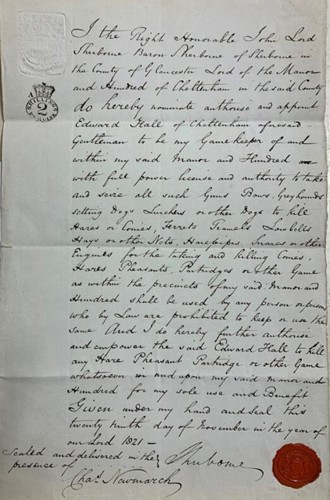 I the Right Honorable John Lord
Sherborne Baron Sherborne of Sherborne in
the County of Gloucester Lord of the Manor
and Hundred of Cheltenham in the said County
do hereby nominate authouse and appoint
Edward Hall of Cheltenham aforesaid
Gentleman to be my Gamekeeper of and
within my said Manor and Hundred
with full power license and authority to take
and seize all such Guns Bows, Greyhounds
setting Dogs Lurchers or other Dogs to kill
Hares or Conies, Ferrets Tramels Lowbells
Hays or other Nets, Harepipes Snares or other
Engines for the taking and killing Conies
Hares Pheasants, Partridges or other Game
as within the precincts of my said Manor and
Hundred shall be used by any person or persons
who by Law are prohibited to keep or use the
same And I do hereby further authouse
and empower the said Edward Hall to kill
any Hare Pheasant Partridge or other Game
whatsoever in and upon my said Manor and
Hundred for my sole use and Benefit
Given under my hand and Seal this
twenty ninth day of November in the year of
our Lord 1821 -
Sealed and delivered in the
presence of
Sherborne
Chas. Newmarch
2